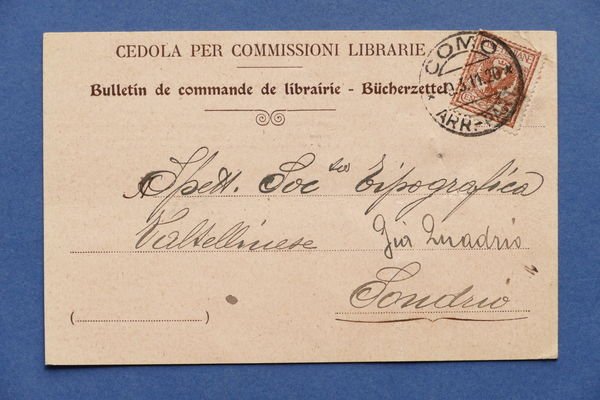 CEDOLA PER COMMISSIONI LIBRARIE
Bulletin de commande de librairie - Bücherzettel
COMO
ARR
Spett. Soc.tà Tipografica
Valtellinese Già Quadrio
Sondrio
( )